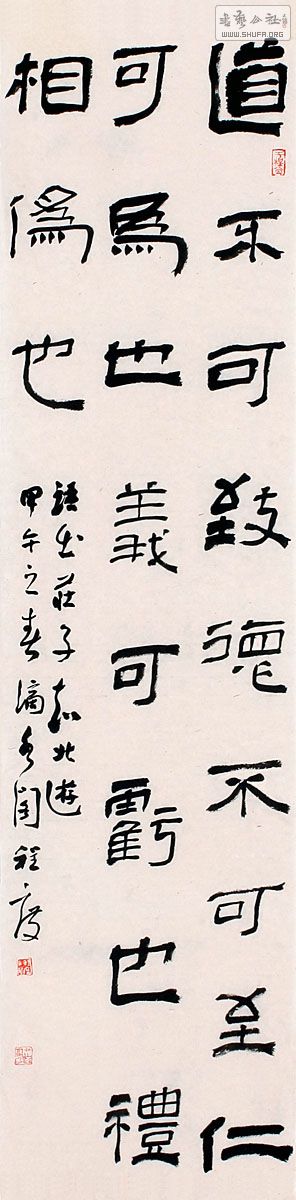 道不可致德不可至仁
可為也義可虧也禮
相偽也
語出莊子知北遊
甲午之春滴水閣程度
書藝公社
WWW.SHUFA.ORG